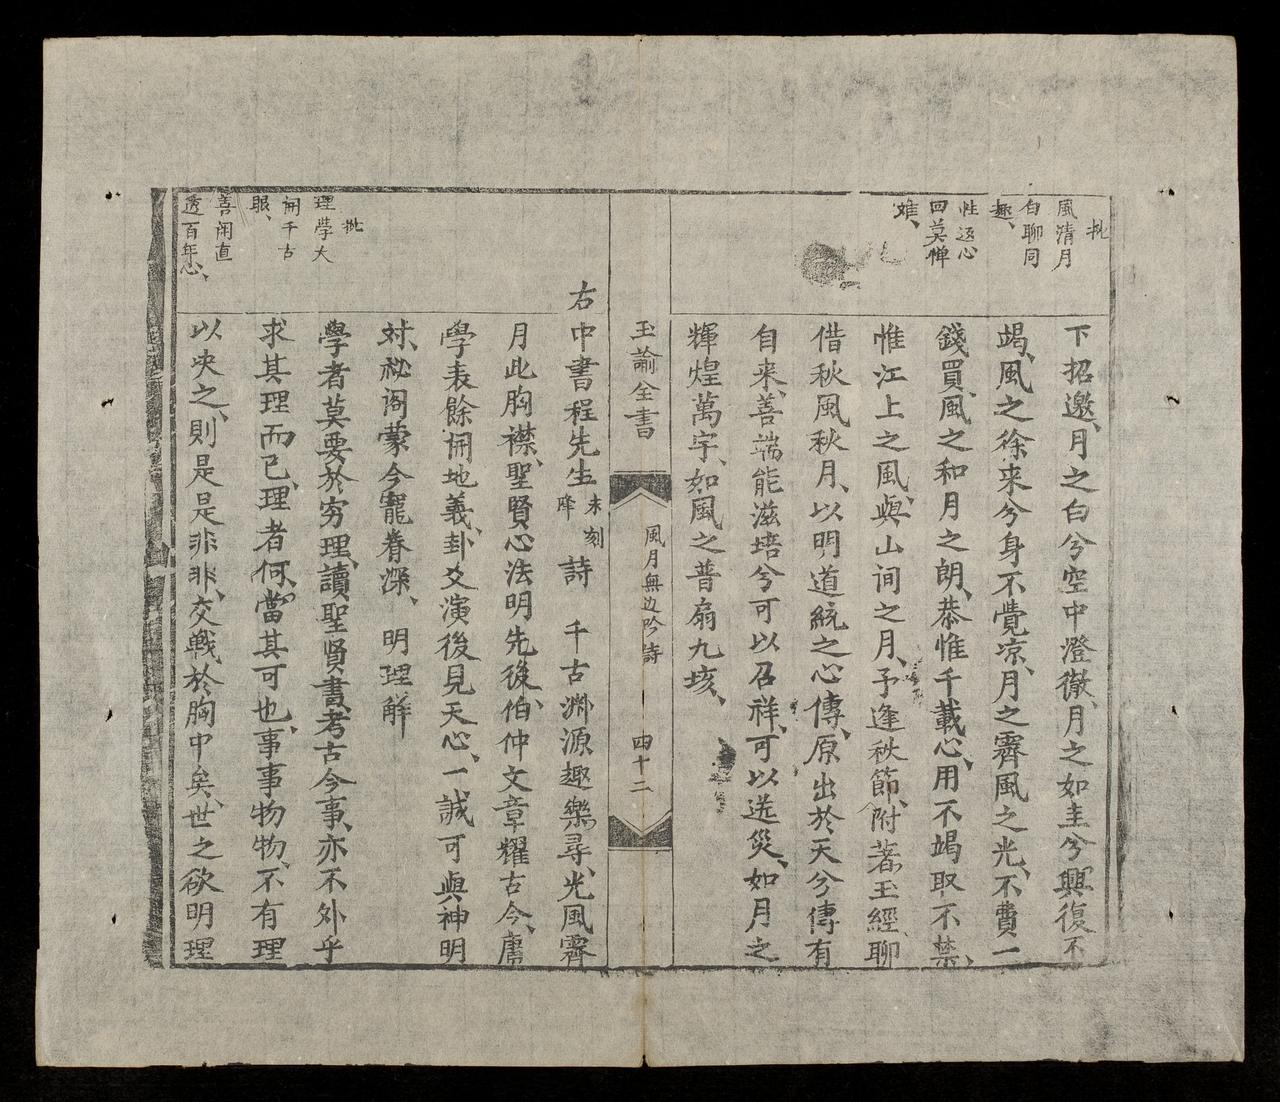 批
風清月
白聊同
趣、
性返心
回莫憚
难、
下招邀、月之白兮空中澄徹、月之如圭兮興復不
竭、風之徐来兮身不覺凉、月之霽風之光、不費一
錢買、風之和月之朗、恭惟千載心、用不竭取不禁、
惟江上之風、與山间之月、予逢秩節、附著玉經、聊
借秋風秋月、以明道統之心傳、原出於天兮傳有
自来、善端能滋培兮可以召祥、可以送災、如月之
輝煌萬宇、如風之普扇九垓、
玉諭全書
風月無边吟詩
四十二
右中書程先生未刻降詩　千古渊源趣樂尋、光風霽
月此胸襟、聖賢心法明先後、伯仲文章耀古今、庸
學表餘開地義、卦爻演後見天心、一誠可與神明
対、祕阁蒙今寵眷深、　明理解
學者莫要於穷理、讀聖賢書、考古今事、亦不外乎
求其理而已、理者何、當其可也、事事物物、不有理
以央之、則是是非非、交戰於胸中矣、世之欲明理
批
理學大
開千古
眼、
善闲直
透百年心、